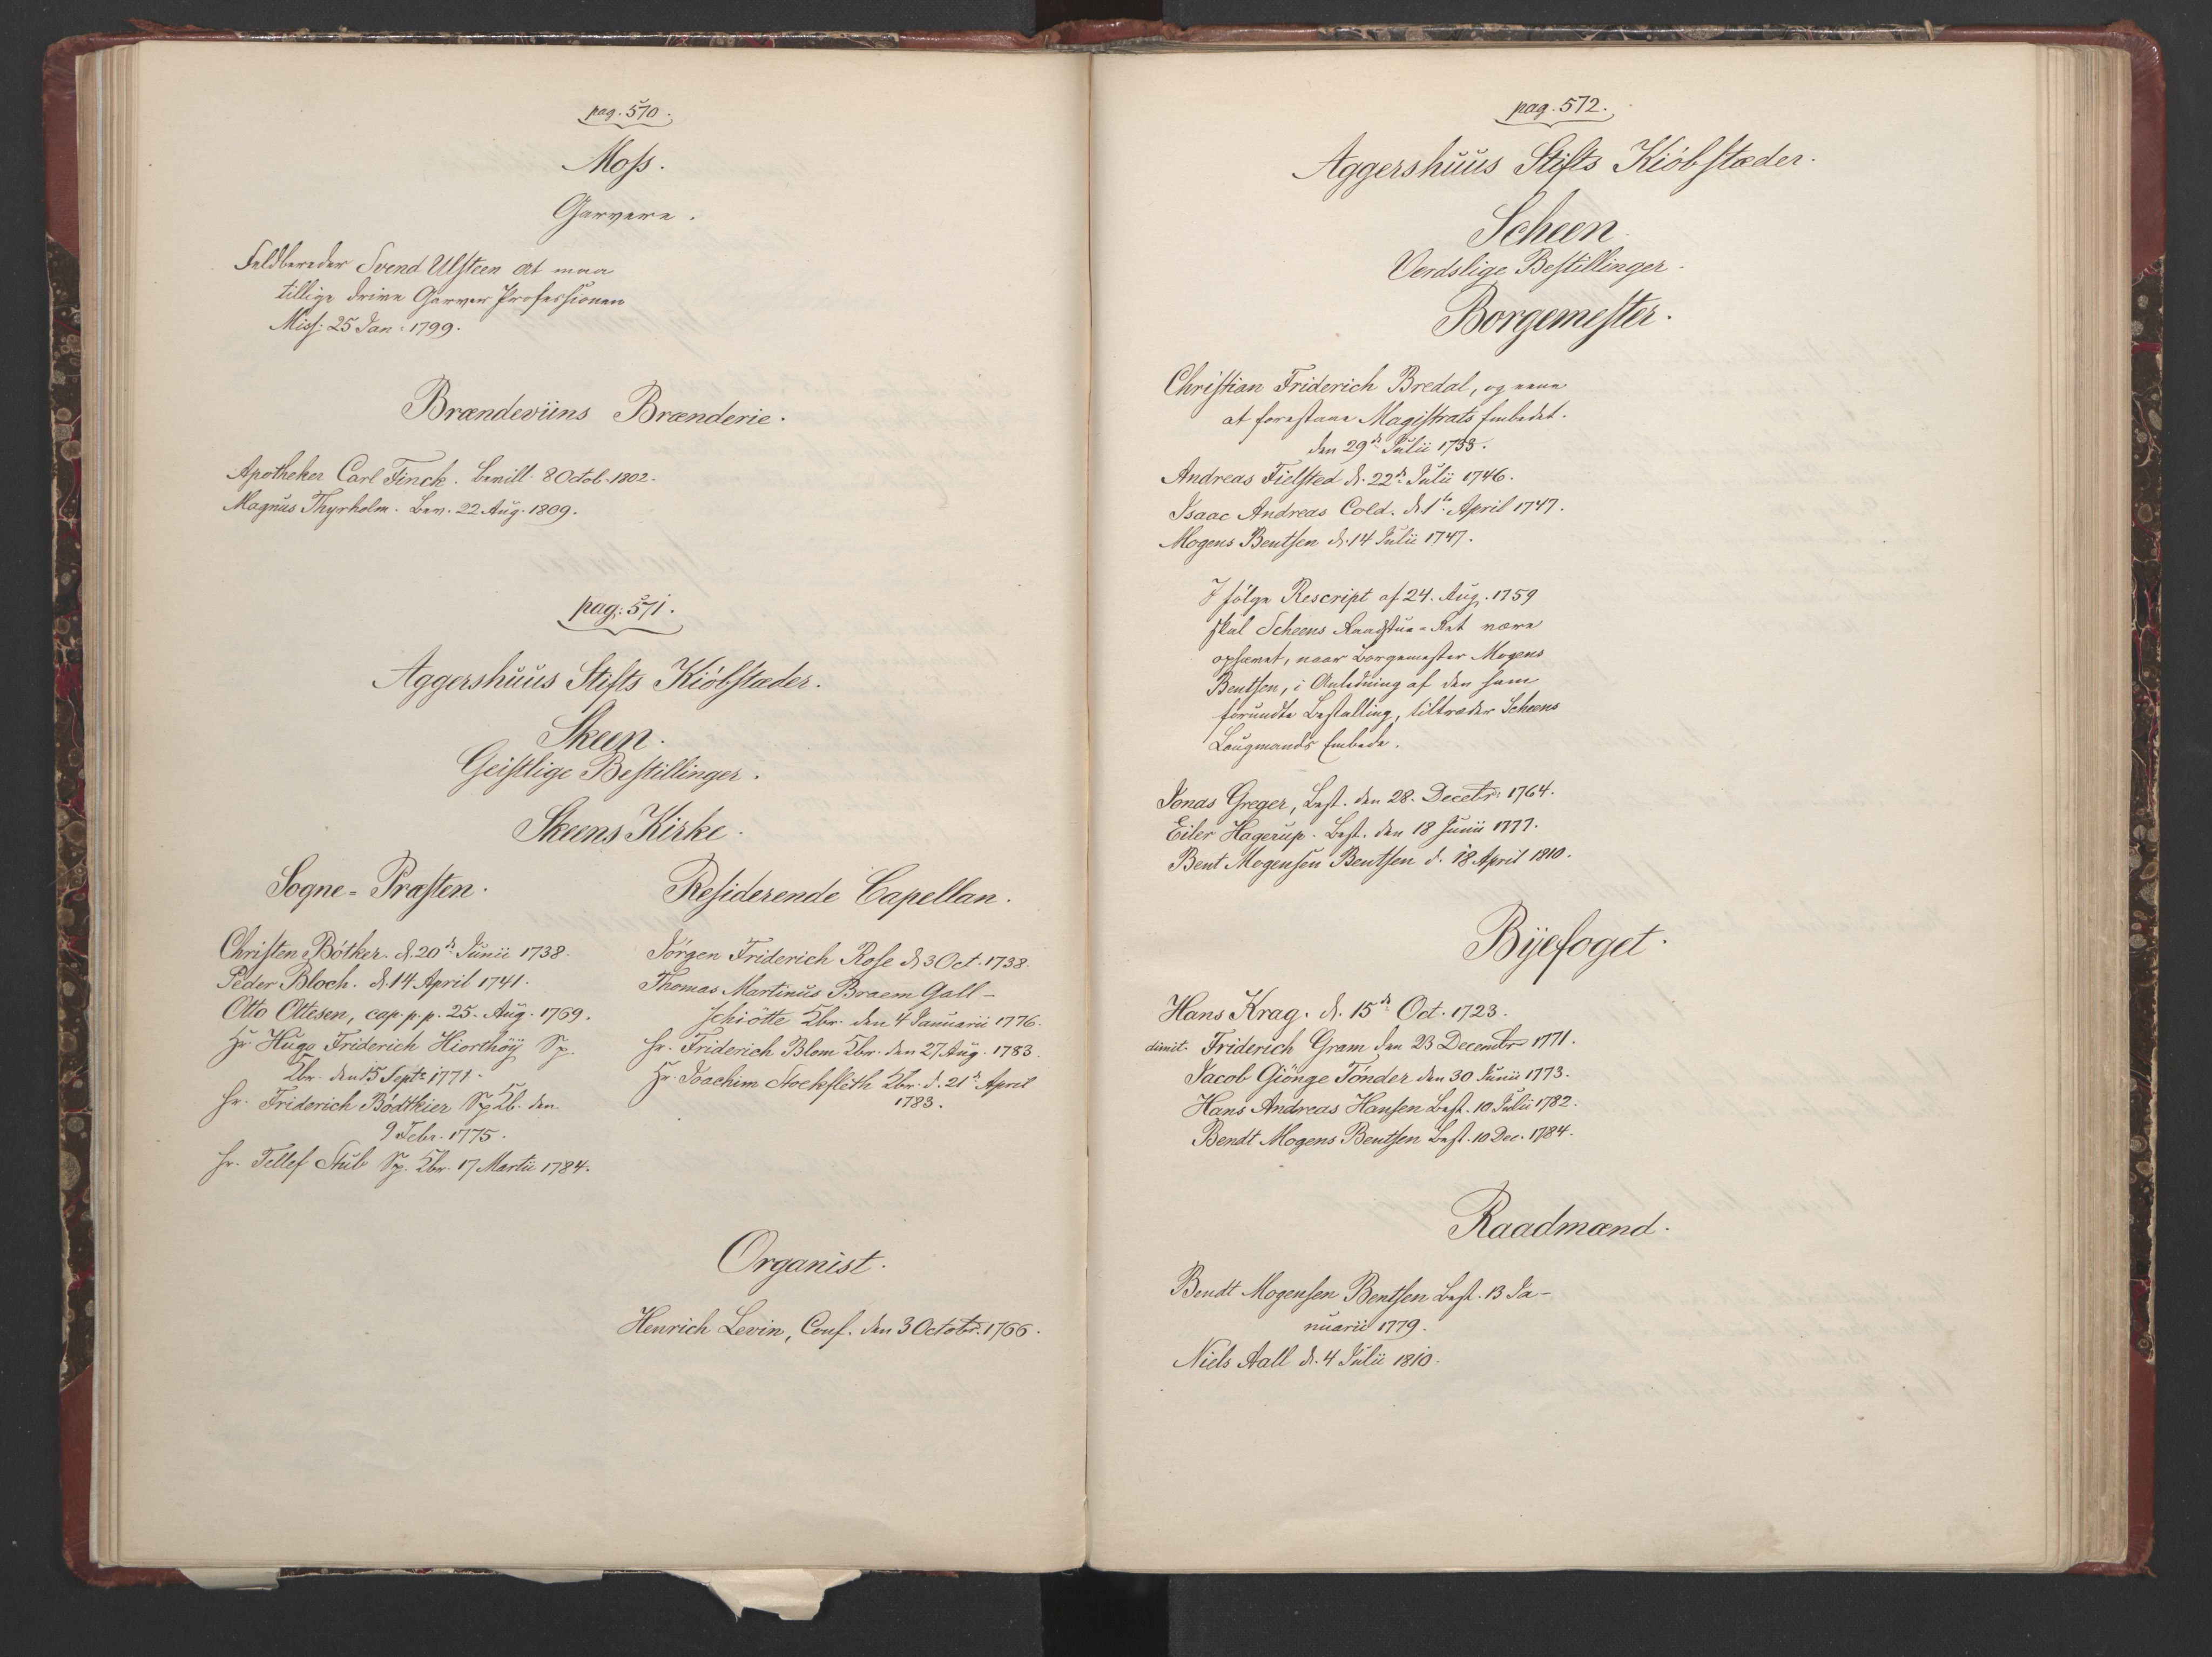 pag. 570.
Moss.
Garvere.
Feldbereder Svend Ulsteen at maa
tillige drive Garver Professionen
Miss: 25 Jan: 1799.
Brændeviins Brænderie.
Apotheker Carl Finck. Bevill. 8 Octob. 1802.
Magnus Thyrholm. Bev. 22 Aug. 1809.
pag: 571.
Aggershuus Stifts Kiöbstæder.
Skeen.
Geistlige Bestillinger.
Skeens Kirke.
Sogne-Præsten.
Christen Bötker. d. 20de Junii 1738.
Peder Bloch. d. 14 April 1741.
Otto Ottesen, cap. p. p. 25. Aug. 1769.
Hr. Hugo Friderich Hiorthöy Sp.
Kbr. den 15 Septr 1771.
Hr. Friderich Bödtkier Sp. Kb. den
9 Febr. 1775.
Hr. Tellef Stub Sp. Kbr. 17 Martii 1784.
Residerende Capellan.
Jörgen Friderich Rose d. 3 Oct. 1738.
Thomas Martinus Braem Gall-
schiötte Kbr. den 4 Januarii 1776.
Hr. Friderich Blom Kbr. den 27 Aug. 1783.
Hr. Joachim Stockfleth Kbr. d. 21de April
1783.
Organist.
Henrich Levin, Conf. den 3 Octobr. 1766.
pag. 572.
Aggershuus Stifts Kiöbstæder.
Scheen.
Verdslige Bestillinger.
Borgemester.
Christian Friderich Bredal, og eene
at forestaae Magistrats Embedet.
den 29de Julii 1733.
Andreas Fielsted d. 22de Julii 1746.
Isaac Andreas Cold. d. 1te April 1747.
Mogens Bentsen d. 14 Julii 1747.
I fölge Rescript af 24. Aug. 1759
skal Scheens Raadstue-Ret være
ophævet, naar Borgemester Mogens
Bentsen, i Anledning af den ham
forundte Bestalling, tiltræder Scheens
Laugmands Embede.
Jonas Greger, Best. den 28. Decebr: 1764.
Eiler Hagerup. Best. den 18 Junii 1777.
Bent Mogensen Bentsen d. 18 April 1810.
Byefoget.
Hans Krag. d. 15de Oct. 1723.
dimit. Friderich Gram den 23 Decembr 1771.
Jacob Giönge Tönder den 30 Junii 1773.
Hans Andreas Hansen Best. 10 Julii 1782.
Bendt Mogens Bentsen Best. 10 Dec. 1784.
Raadmænd.
Bendt Mogensen Bentsen Best. 13 Ja-
nuarii 1779.
Niels Aall d. 4 Julii 1810.